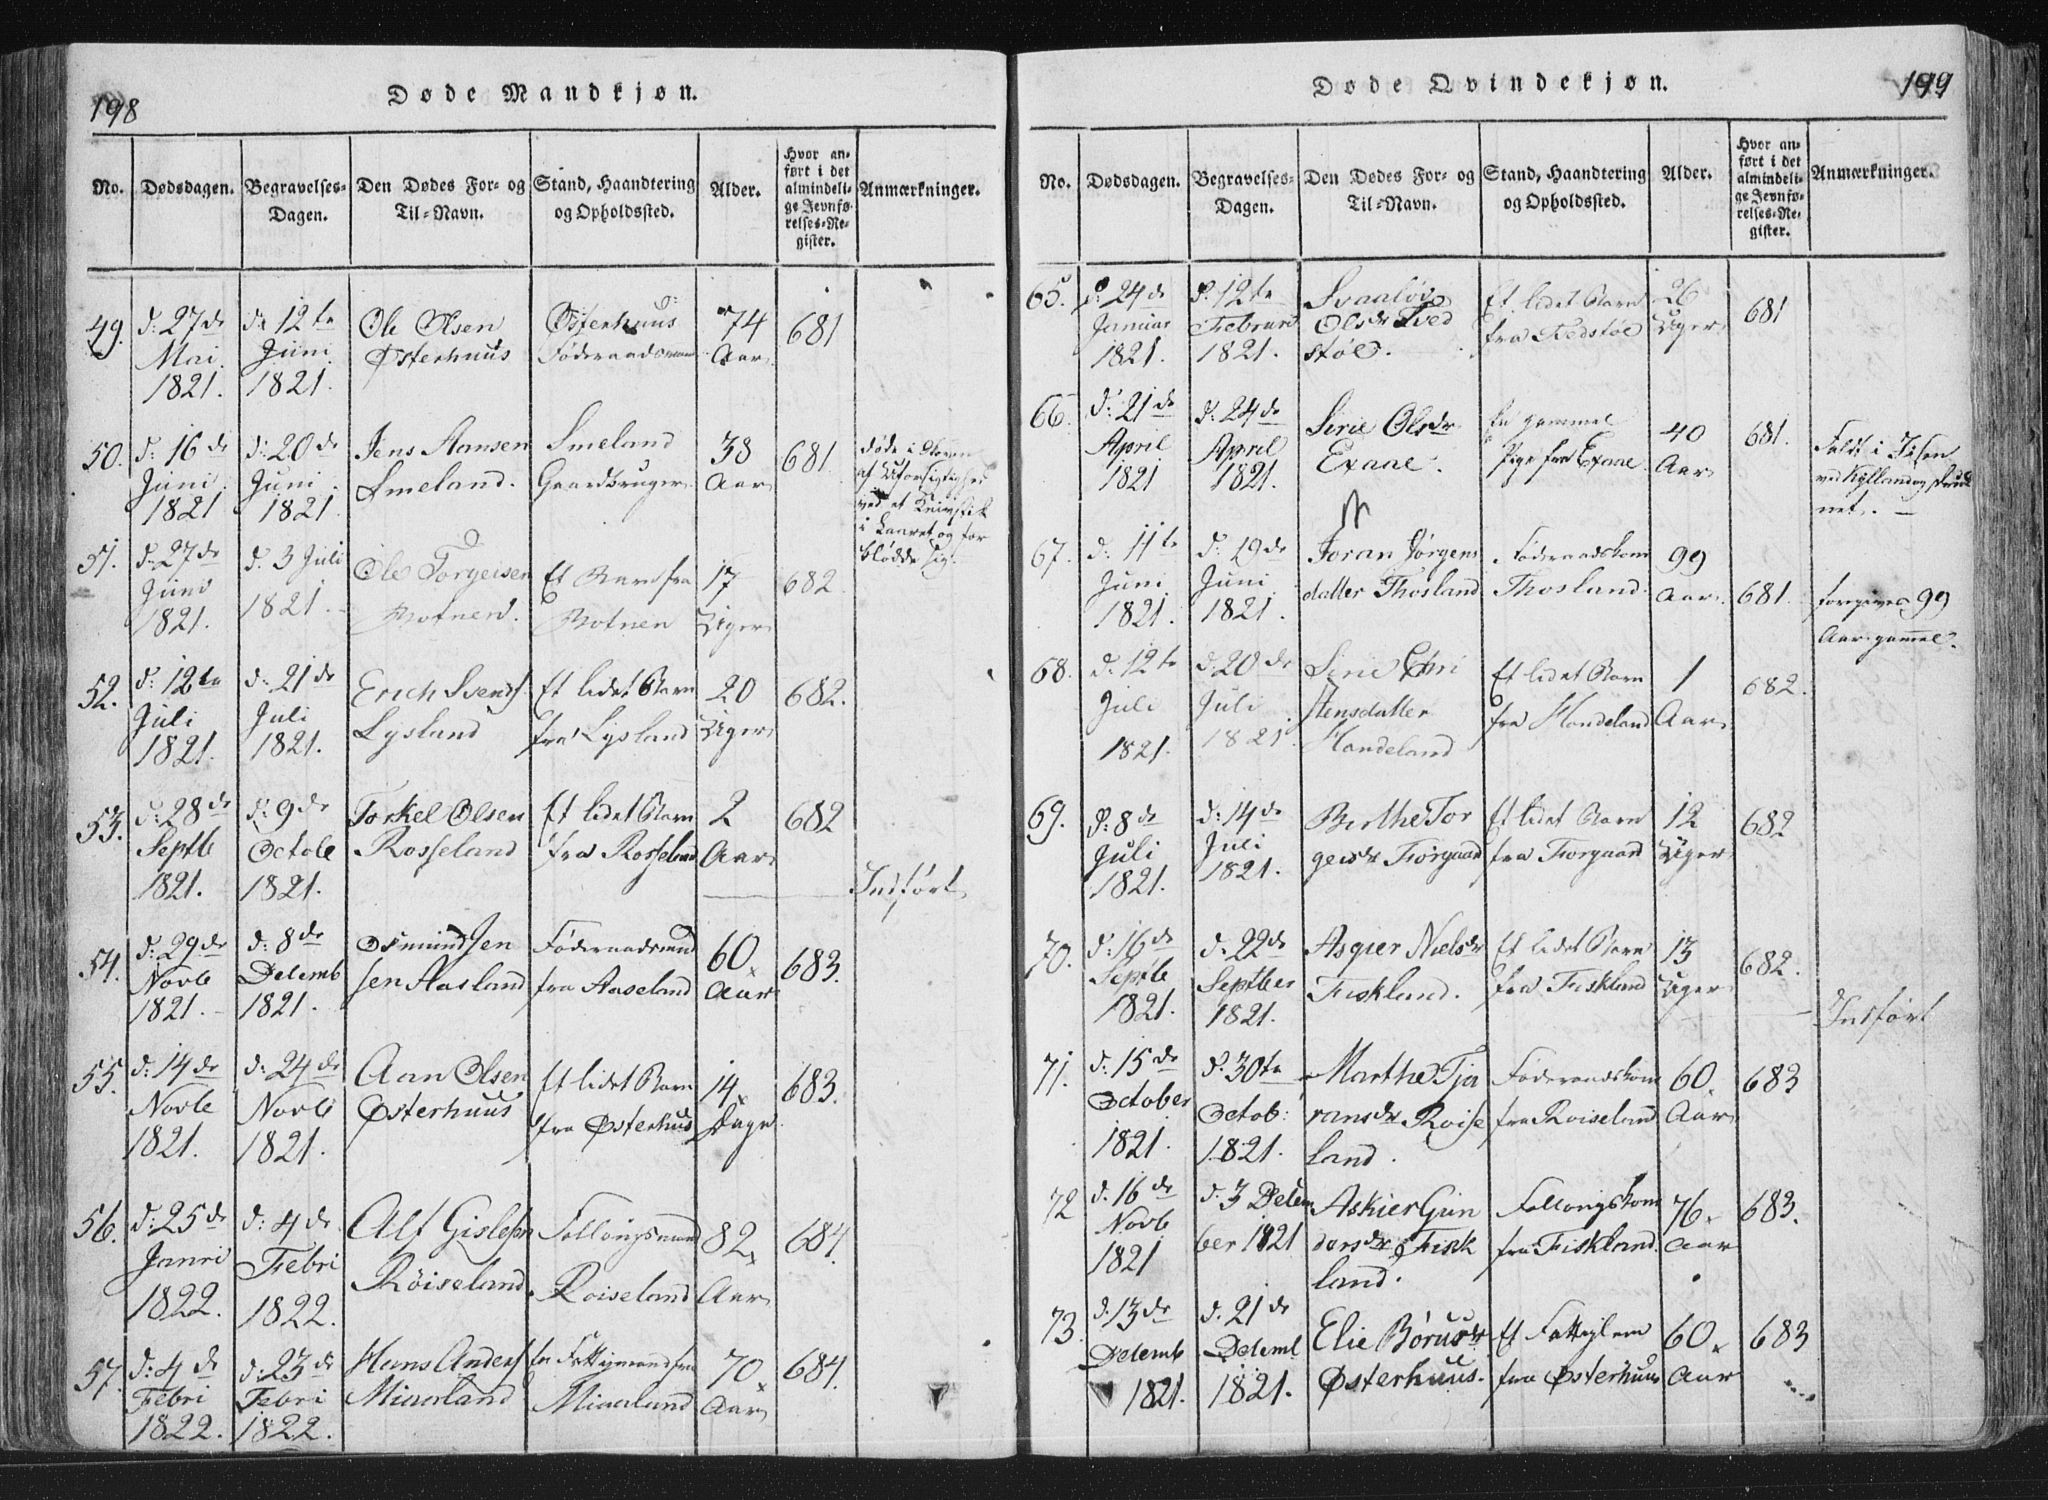 198
Døde Mandkjøn.
No.
Dødsdagen.
Begravelses-
Dagen.
Den Dødes For- og
Til-Navn.
Stand, Haandtering
og Opholdssted.
Alder.
Hvor an-
ført i det
almindeli-
ge Jevnfø-
relses-Re-
gister.
Anmærkninger.
49.
d: 27de
Mai
1821.
d: 12te
Juni
1821.
Ole Olsen
Østerhuus
Østerhuus
Føderaadsmand
74
Aar
681
50.
d: 16de
Juni
1821
d: 20de
Juni
1821.
Jens Aansen
Smeland.
Smeland
Gaardbruger
38
Aar
681.
døde i Skoven
af Uforsigtighed
ved et Knivstik
i Laaret og for
blødde sig.
51.
d: 27de
Juni
1821.
d. 3 Juli
1821.
Ole Torgeisen
Botnen.
Et Barn fra
Botnen
17
Uger
682.
52.
d: 12te
Juli
1821.
d: 21de
Juli
1821.
Erich Svends
Lysland
Et lidet Barn
fra Lysland
20
Uger
682.
53.
d: 28de
Septb
1821.
d: 9de
Octob
1821.
Torkel Olsen
Rosseland
Et lidet Barn
fra Rosseland
2
Aar
682
Indført
54.
d: 29de
Novb
1821.
d: 8de
Decemb
1821.
Osmund Jen
sen Aasland
Føderaadsmand
fra Aaseland
60
Aar
683.
55.
d: 14de
Novb
1821.
d: 24de
Novb
1821.
Aan Olsen
Østerhuus
Et lidet Barn
fra Østerhus
14
Dage
683.
56.
d: 25de
Janri
1822.
d: 4de
Febri
1822.
Alf Gislesen
Røiseland
Føllougsmand
Roiseland
82
Aar
684.
57.
d: 4de
Febri
1822.
d: 23de
Febri
1822.
Hans Anders
Miaaland
en Fattigmand fra
Miaaland
70
Aar
684.
199
Døde Qvindekjøn.
No.
Dødsdagen.
Begravelses-
Dagen.
Den Dødes For- og
Til-Navn.
Stand, Haandtering
og Opholdssted.
Alder.
Hvor an-
ført i det
almindeli-
ge Jevnfø-
relses-Re-
gister.
Anmærkninger.
65.
d: 24de
Januar
1821.
d. 12te
Februar
1821.
Svaaløv
Olsdr Tved
støl.
Et lidet Barn
fra
26
Uger
681
66.
d: 21de
April
1821
d: 24de
April
1821.
Sirie Olsdr
Exaae.
En gammel
Pige fra Exaae
40
Aar
681.
Faldt i Isen
ved Kylland og druk
net.
67.
d: 11te
Juni
1821.
d: 19de
Juni
1821.
Joran Jørgens
datter Thosland
Føderaadskone
Thosland
99
Aar
681.
foregives 99
Aar gammel.
68.
d: 12te
Juli
1821.
d: 20de
Juli
1821.
Sirie Chri
stensdatter
Handeland
Et lidet Barn
fra Handeland
1
Aar
682.
69.
d: 8de
Juli
1821.
d: 14de
Juli
1821.
Birthe Tor
geisdr Fiørgaard
Et lidet Barn
fra Fiorgaard
12
Uger
682
70.
d: 16de
Septb
1821.
d. 22de
Septber
1821.
Asgier Nielsdr
Fiskland.
Et lidet Barn
fra Fiskland
13
Uger
682.
Indført
71.
d. 15de
October
1821.
d. 30te
Octob:
1821.
Marthe Tja
ransdr Roise
land.
Føderaadskone
fra Roiseland
60
Aar
683
72
d. 16de
Novb
1821
d. 3 Decem
ber 1821
Askier Gun
darsdr Fisk
land.
Føllougskone
fra Fiskland.
76
Aar
683.
73.
d. 13de
Decemb
1821.
d. 21de
Decemb
1821.
Elie Børusdr
Østerhuus.
Et Fattiglem
fra Østerhuus
60
Aar
683